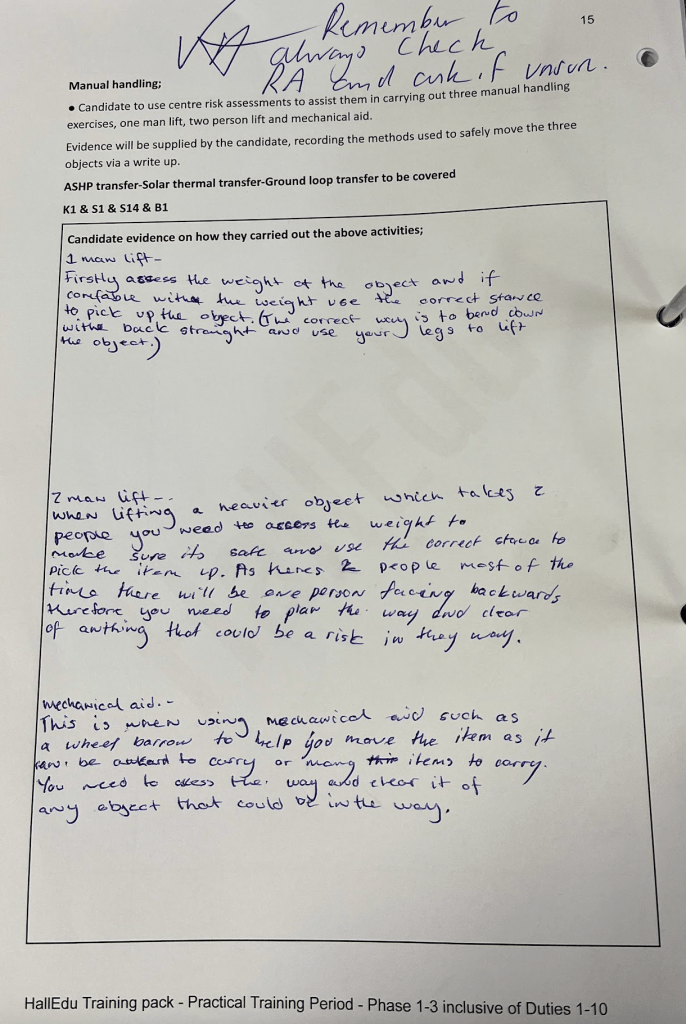 Remember to
15
always check
RA and ask if unsure.
Manual handling;
• Candidate to use centre risk assessments to assist them in carrying out three manual handling
exercises, one man lift, two person lift and mechanical aid.
Evidence will be supplied by the candidate, recording the methods used to safely move the three
objects via a write up.
ASHP transfer-Solar thermal transfer-Ground loop transfer to be covered
K1 & S1 & S14 & B1
Candidate evidence on how they carried out the above activities;
1 man lift -
Firstly assess the weight of the object and if
comfable with the weight use the correct stance
to pick up the object. (The correct way is to bend down
withe back straight and use your legs to lift
the object.)
2 man lift -.
when lifting a heavier object which takes 2
people you need to assess the weight to
make sure its safe and use the correct stance to
pick the item up. As theres 2 people most of the
time there will be one person facing backwards
therefore you need to plan the way and clear
of anthing that could be a risk in they way.
mechanical aid. -
This is when using mechanical aid such as
a wheel barrow to help you move the item as it
can be awkard to carry or many items to carry.
You need to assess the way and clear it of
any object that could be in the way.
HallEdu Training pack - Practical Training Period - Phase 1-3 inclusive of Duties 1-10